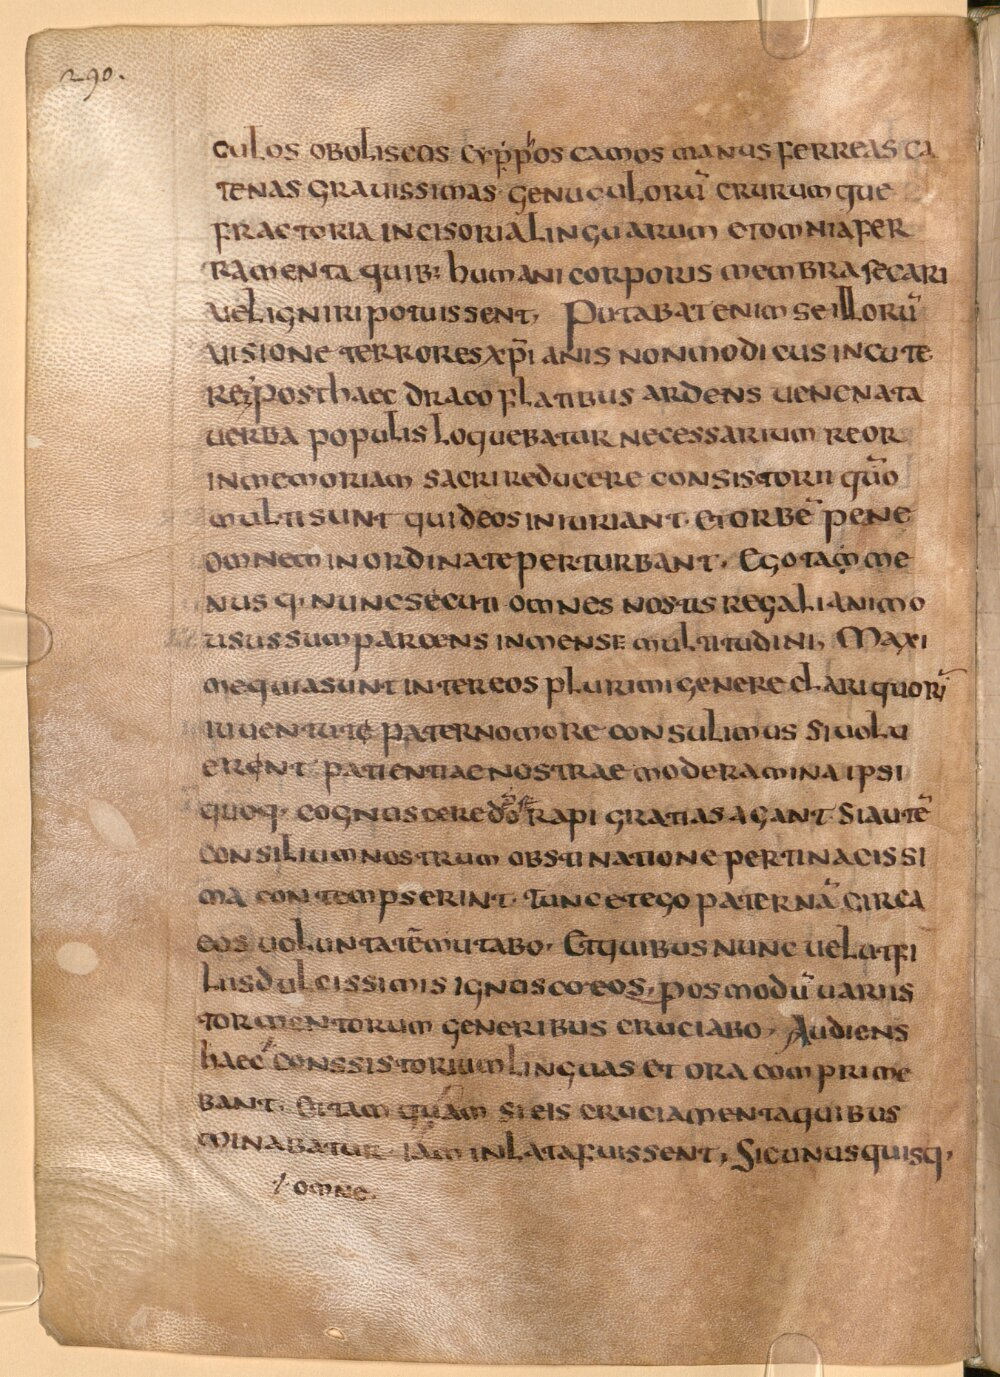 290.
culos oboliscos cyppos camos manus ferreas ca
tenas grauissimas genuculorū crurumque
fractoria incisoria linguarum et omnia fer
ramenta quib; humani corporis membra secari
uel igniri potuissent, Putabat enim se illorū
uisione terrores xp̄ianis non modicus incute
re, Post haec draco flatibus ardens uenenata
uerba populis loquebatur necessarium reor
in memoriam sacri reducere consistorii quō
multi sunt qui deos iniuriant et orbē pene
omnem inordinate perturbant. Ego tam me
nus q, nunc secuti omnes nostis regali animo
usus sum parcens inmense multitudini, Maxi
me quia sunt inter eos plurimi genere clari quorū
iuuentute paterno more consulimus si uolu
erent patientiae nostrae moderamina ipsi
quoq, cognuscere do rapi gratias agant Si autē
consilium nostrum obstinatione pertinacissi
ma contempserint. Tunc et ego paternā circa
eos uoluntatē mutabo. Et quibus nunc uelut fi
lius dulcissimis ignosco eos, posmodū uariis
tormentorum generibus cruciabo, Audiens
haec conssistorium linguas et ora comprime
bant. Et tam quam si eis cruciamenta quibus
minabatur iam inlata fuissent, Sic unusquisq,
omne.